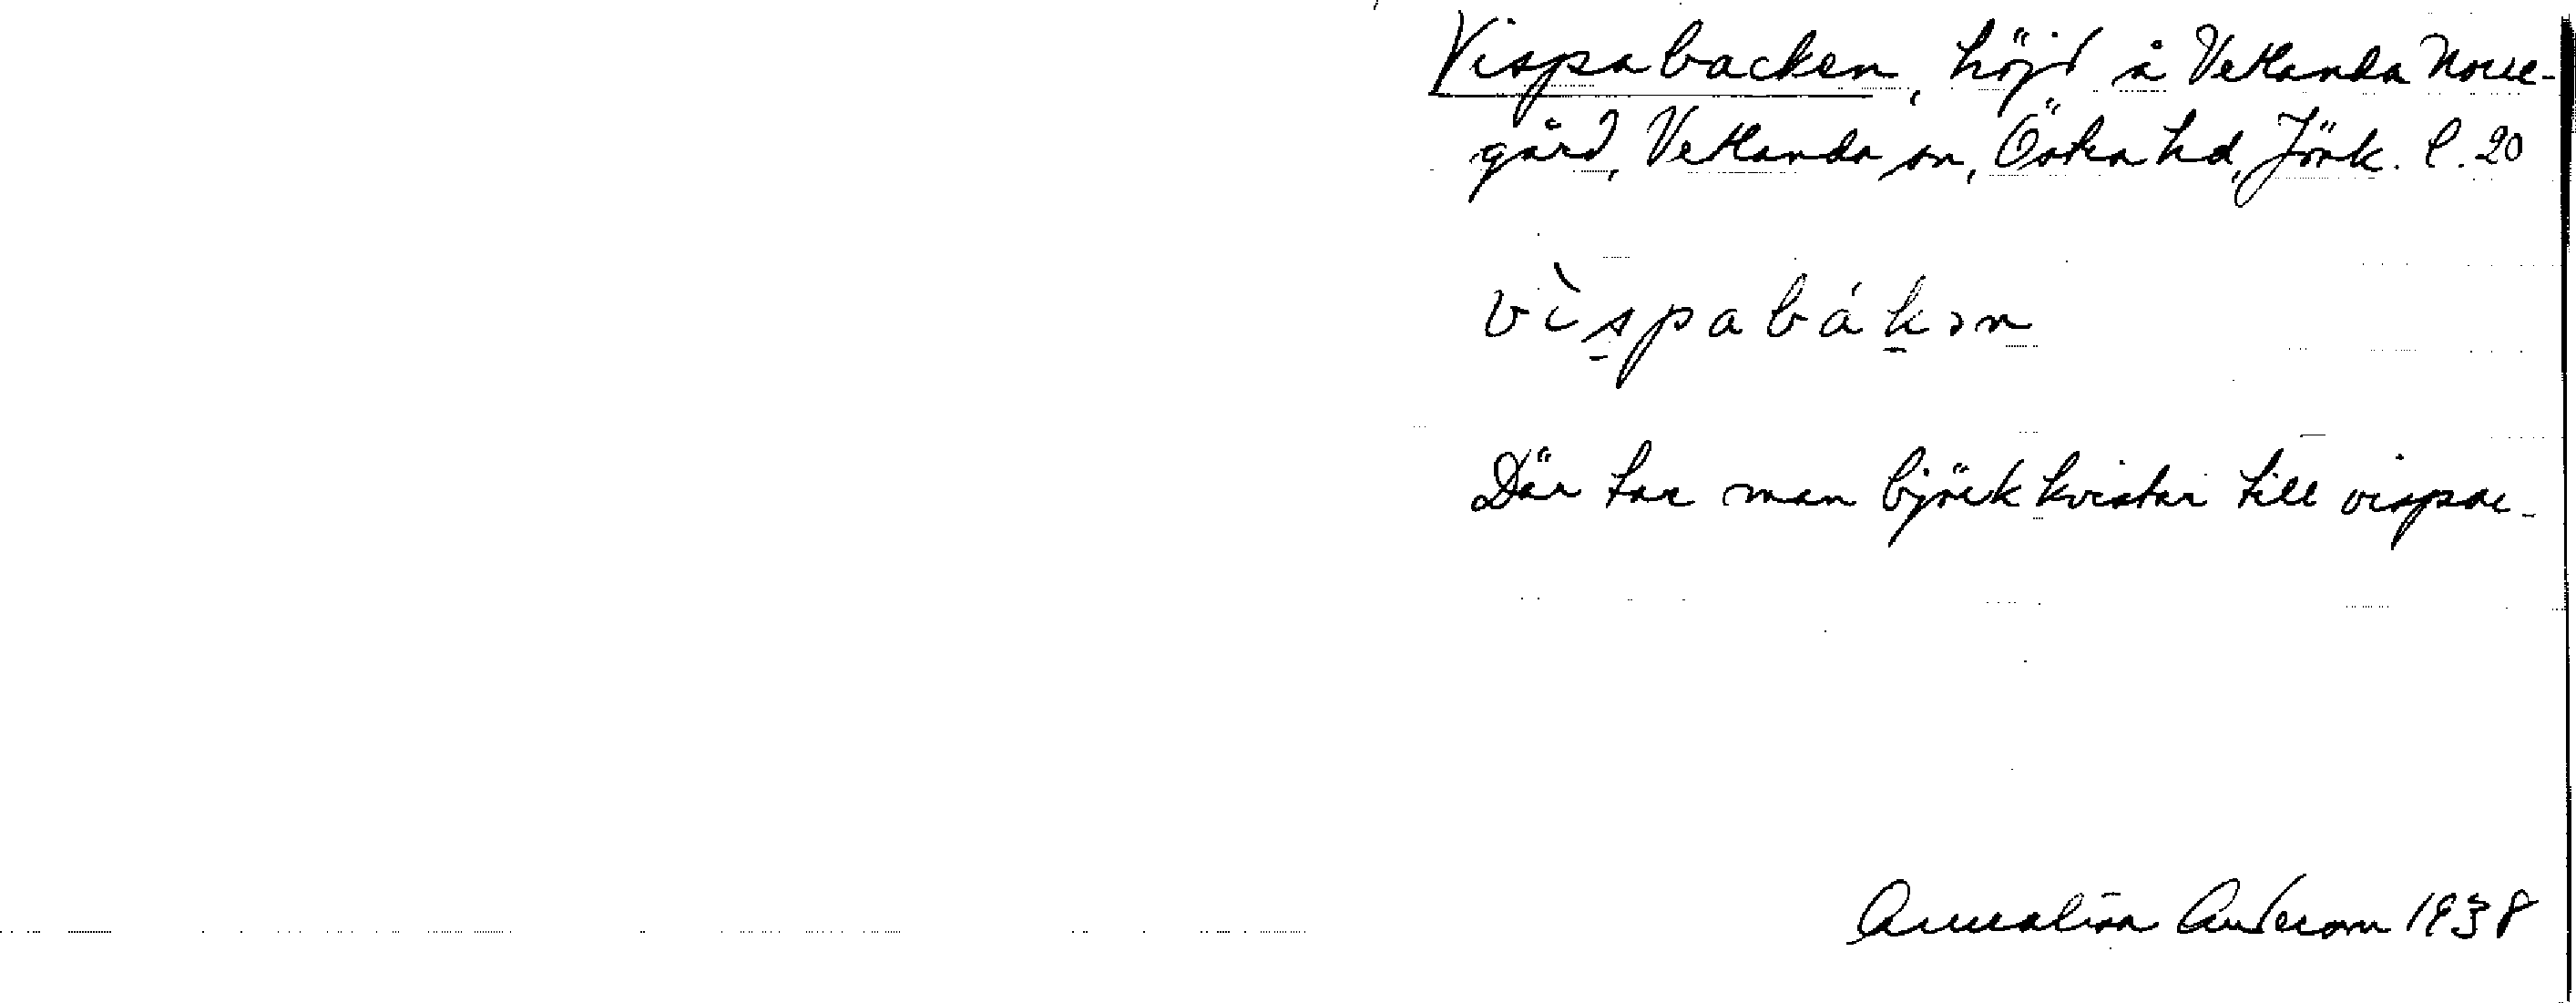 Vispabacken, höjd å Vetlanda Norre-
gård, Vetlanda sn, Östra hd, Jönk. l. 20
vìspabákən
Där tar man björkkvistar till vispar.
Annalisa Anderson 1938